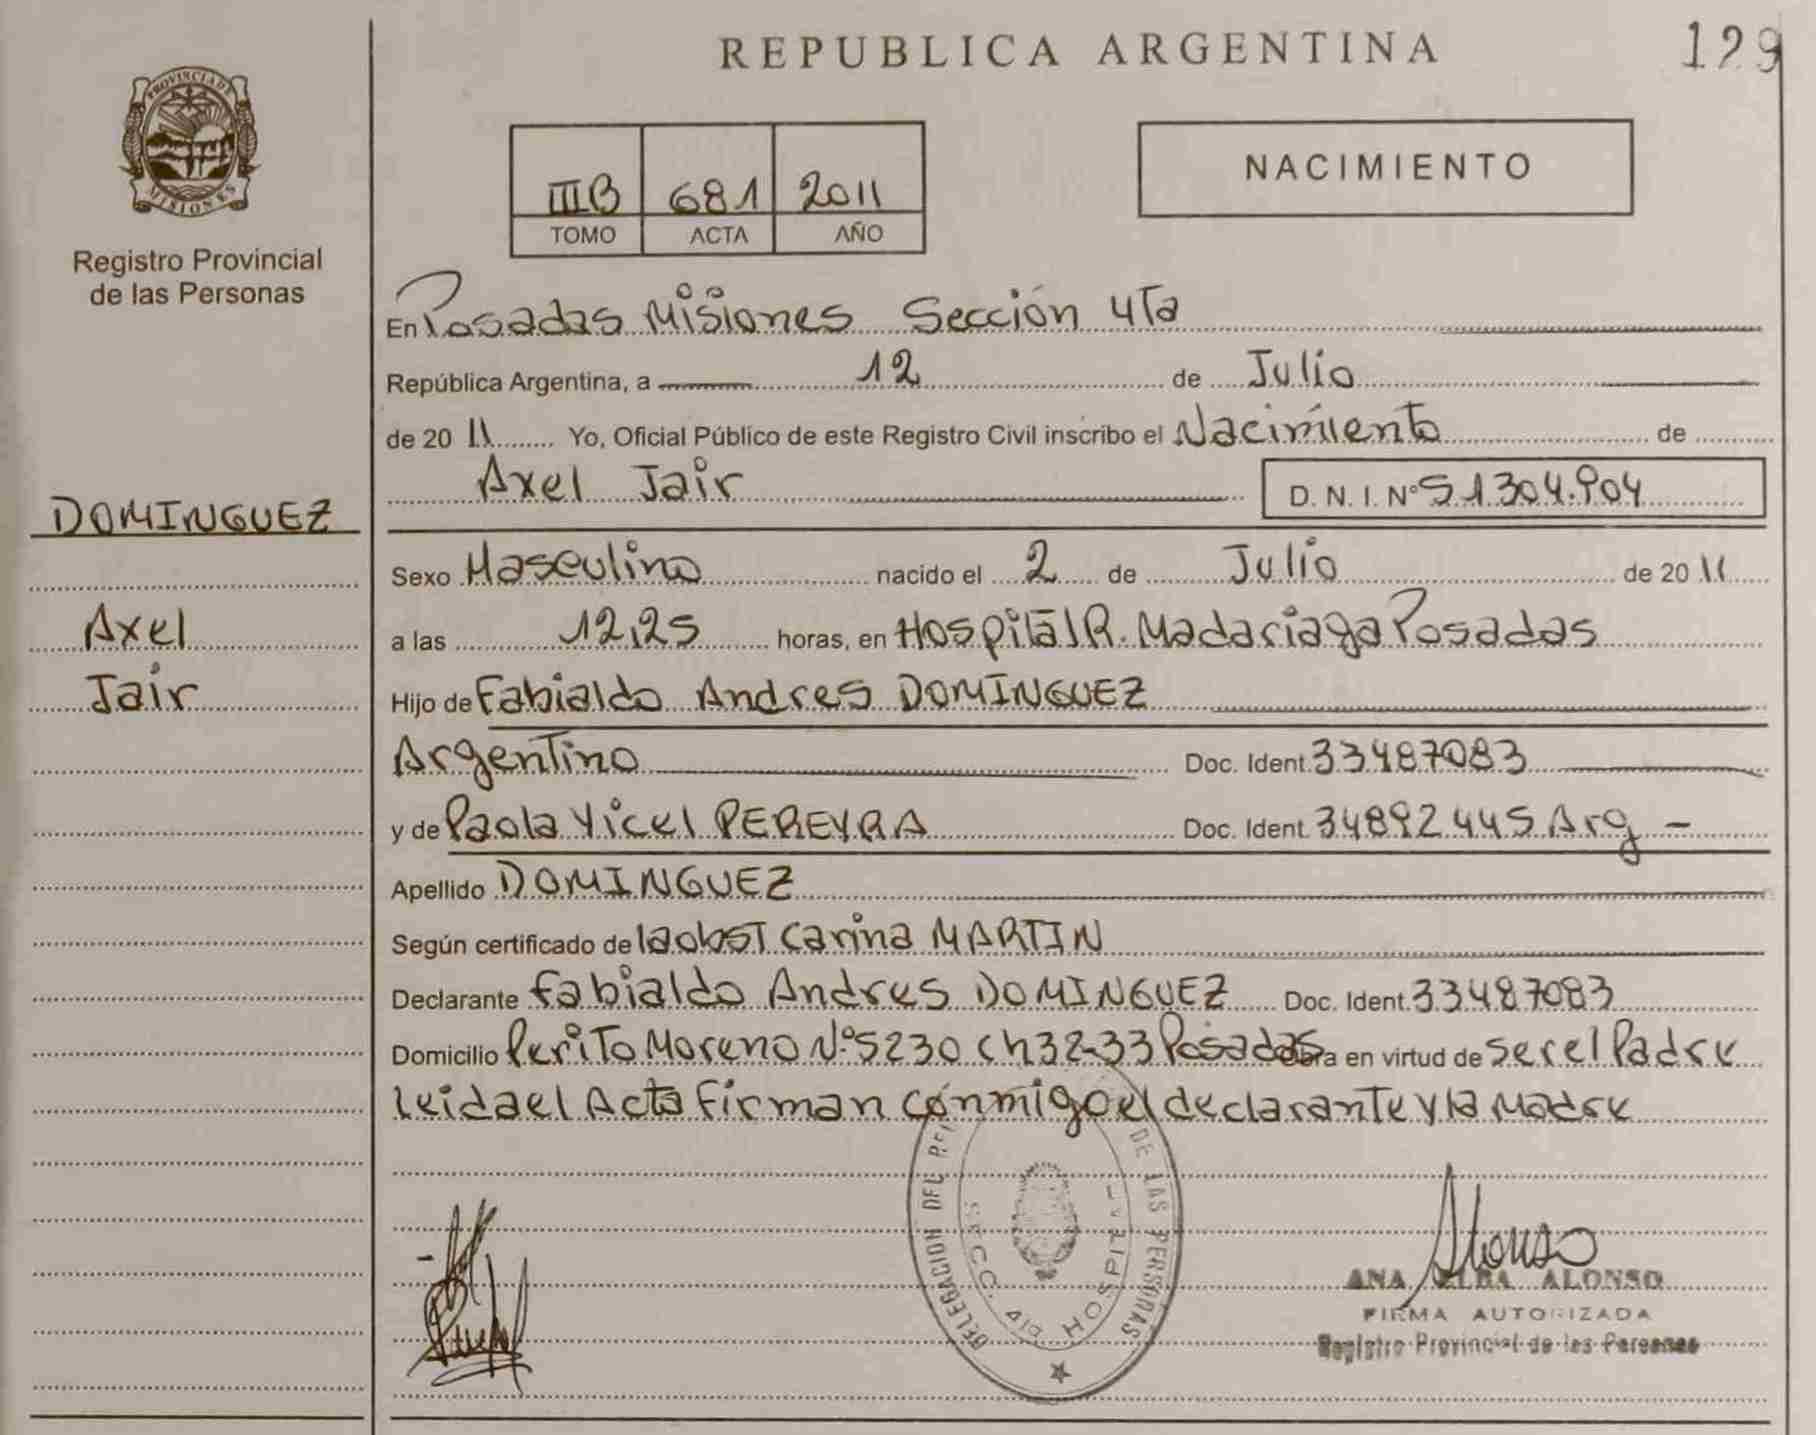 REPUBLICA ARGENTINA
129
PROVINCIA DE
MISIONES
Registro Provincial
de las Personas
IIIB 681 2011
TOMO ACTA AÑO
NACIMIENTO
En Posadas Misiones Sección 4Ta
República Argentina, a 12 de Julio
de 20 11 Yo, Oficial Público de este Registro Civil inscribo el Nacimiento de
Axel Jair D. N. I. Nº 51.304.904
DOMINGUEZ
Sexo Masculino nacido el 2 de Julio de 20 11
Axel
a las 12,25 horas, en Hospital R. Madariaga Posadas
Jair
Hijo de Fabialdo Andres DOMINGUEZ
Argentino Doc. Ident. 33487083
y de Paola Yicel PEREYRA Doc. Ident. 34892445 Arg -
Apellido DOMINGUEZ
Según certificado de la obst Carina MARTIN
Declarante Fabialdo Andres DOMINGUEZ Doc. Ident. 33487083
Domicilio Perito Moreno Nº 5230 ch 32-33 Posadas Obra en virtud de ser el Padre
Leida el Acta Firman conmigo el declarante y la Madre
DELEGACION DEL DE LAS PERSONAS
SECC. 4ta HOSPITAL
Alonso
ANA ELBA ALONSO
FIRMA AUTORIZADA
Registro Provincial de las Personas